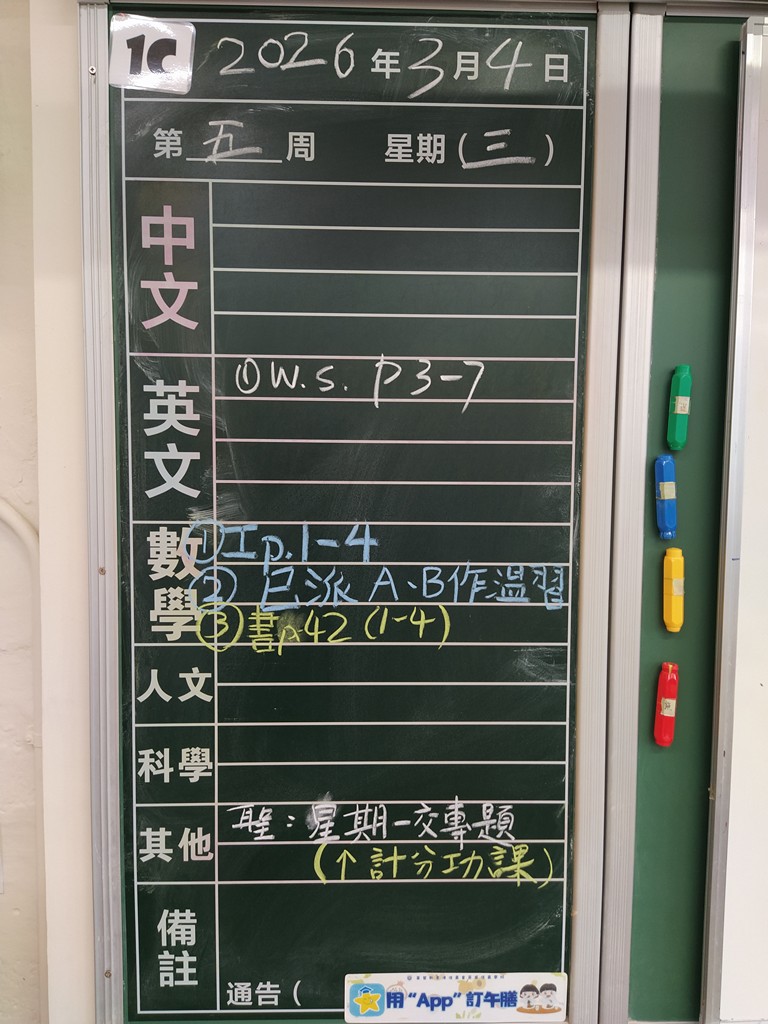 1C 2026年3月4日
第五周 星期(三)
中文
英文
①W.S. P3-7
數學
①工p.1-4
②已派A、B作溫習
③書p.42 (1-4)
人文
科學
其他
聖：星期一交專題
(↑計分功課)
備註
通告 (
用“App”訂午膳